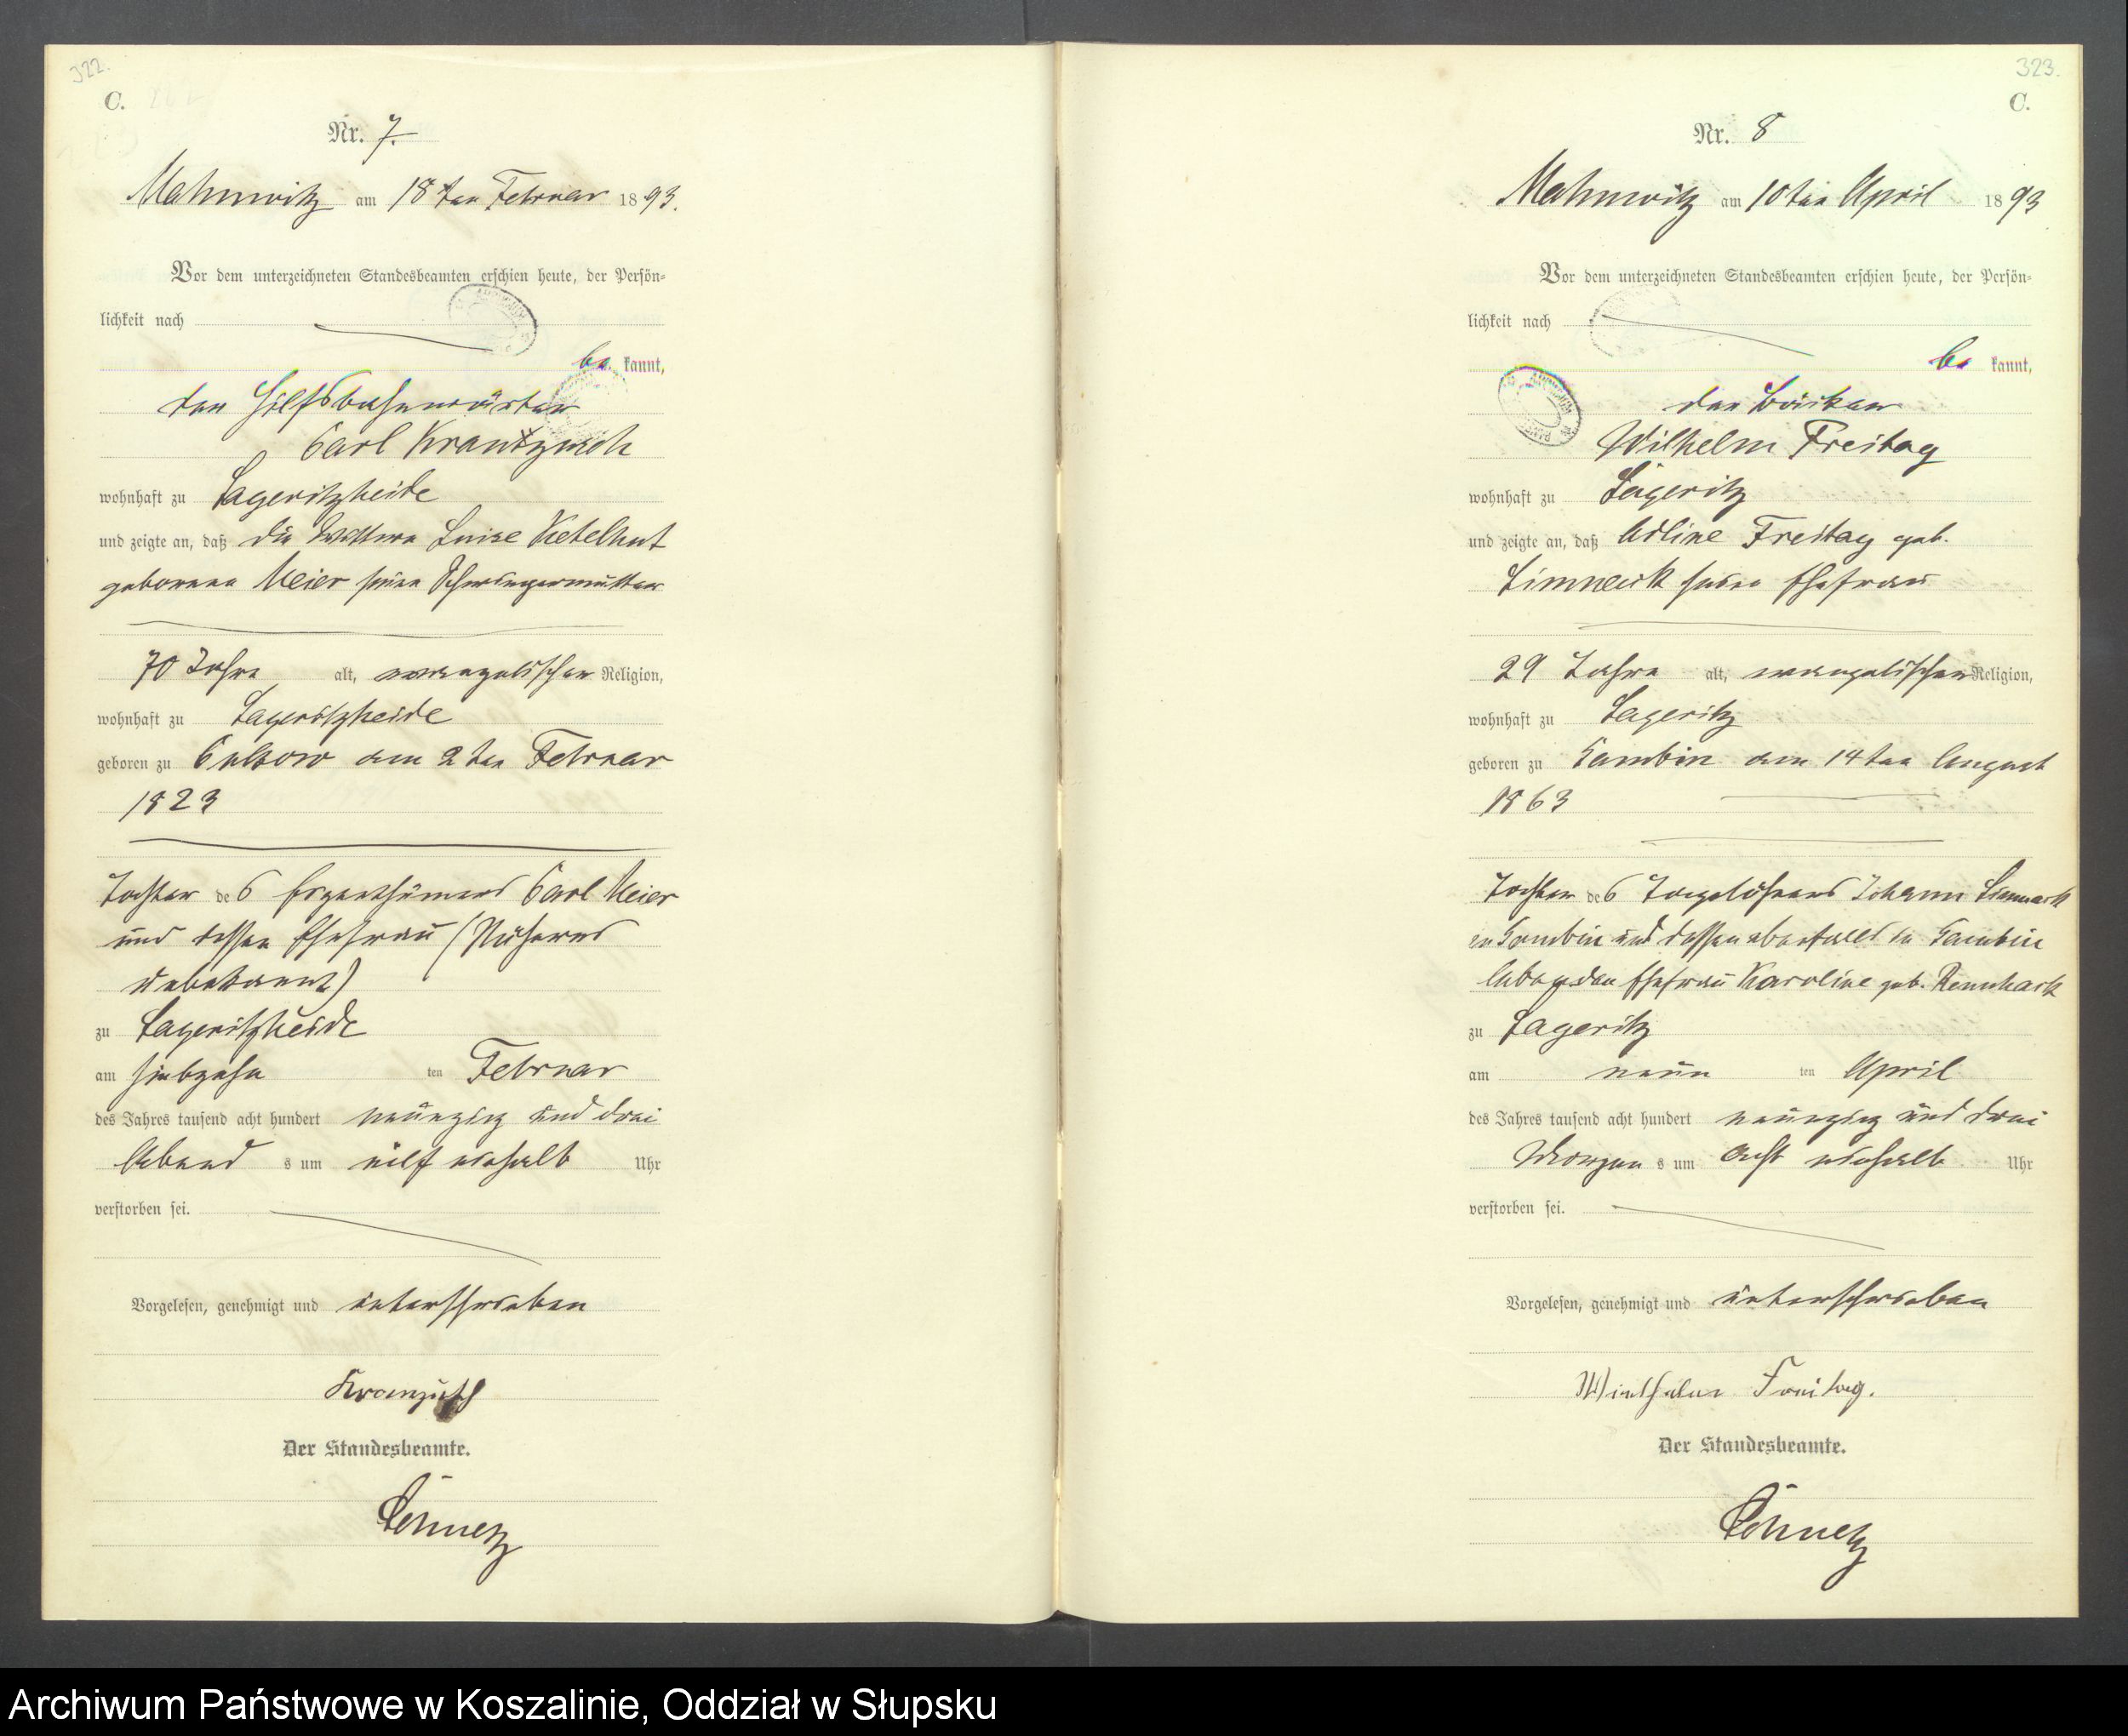 322.
C.
Nr. 7.
Mahnwitz am 18 ten Februar 1893.
Vor dem unterzeichneten Standesbeamten erschien heute, der Persön-
lichkeit nach
be kannt,
der Hilfsbahnwärter
Carl
wohnhaft zu Lageritzheide
und zeigte an, daß die Wittwe Luise Ketelhut
geborene Meier seine Schwiegermutter
70 Jahre alt, evangelischer Religion,
wohnhaft zu Lageritzheide
geboren zu am 2 ten Februar
1823
Tochter des Eigenthümers Carl Meier
und dessen Ehefrau (Näheres
unbekannt)
zu Lageritzheide
am siebzehn ten Februar
des Jahres tausend acht hundert neunzig und drei
Abend s um elf einhalb Uhr
verstorben sei.
Vorgelesen, genehmigt und unterschrieben
Der Standesbeamte.
323.
C.
Nr. 8
Mahnwitz am 10 ten April 1893
Vor dem unterzeichneten Standesbeamten erschien heute, der Persön-
lichkeit nach
be kannt,
der
Wilhelm Freitag
wohnhaft zu Lageritz
und zeigte an, daß Adline Freitag geb.
seine Ehefrau
29 Jahre alt, evangelischer Religion,
wohnhaft zu Lageritz
geboren zu Gambin am 14 ten August
1863
Tochter des Tagelöhners Johann
in Gambin und dessen ebenfalls in Gambin
lebenden Ehefrau Karoline geb.
zu Lageritz
am neun ten April
des Jahres tausend acht hundert neunzig und drei
Morgen s um acht einhalb Uhr
verstorben sei.
Vorgelesen, genehmigt und unterschrieben
Freitag.
Der Standesbeamte.
Archiwum Państwowe w Koszalinie, Oddział w Słupsku